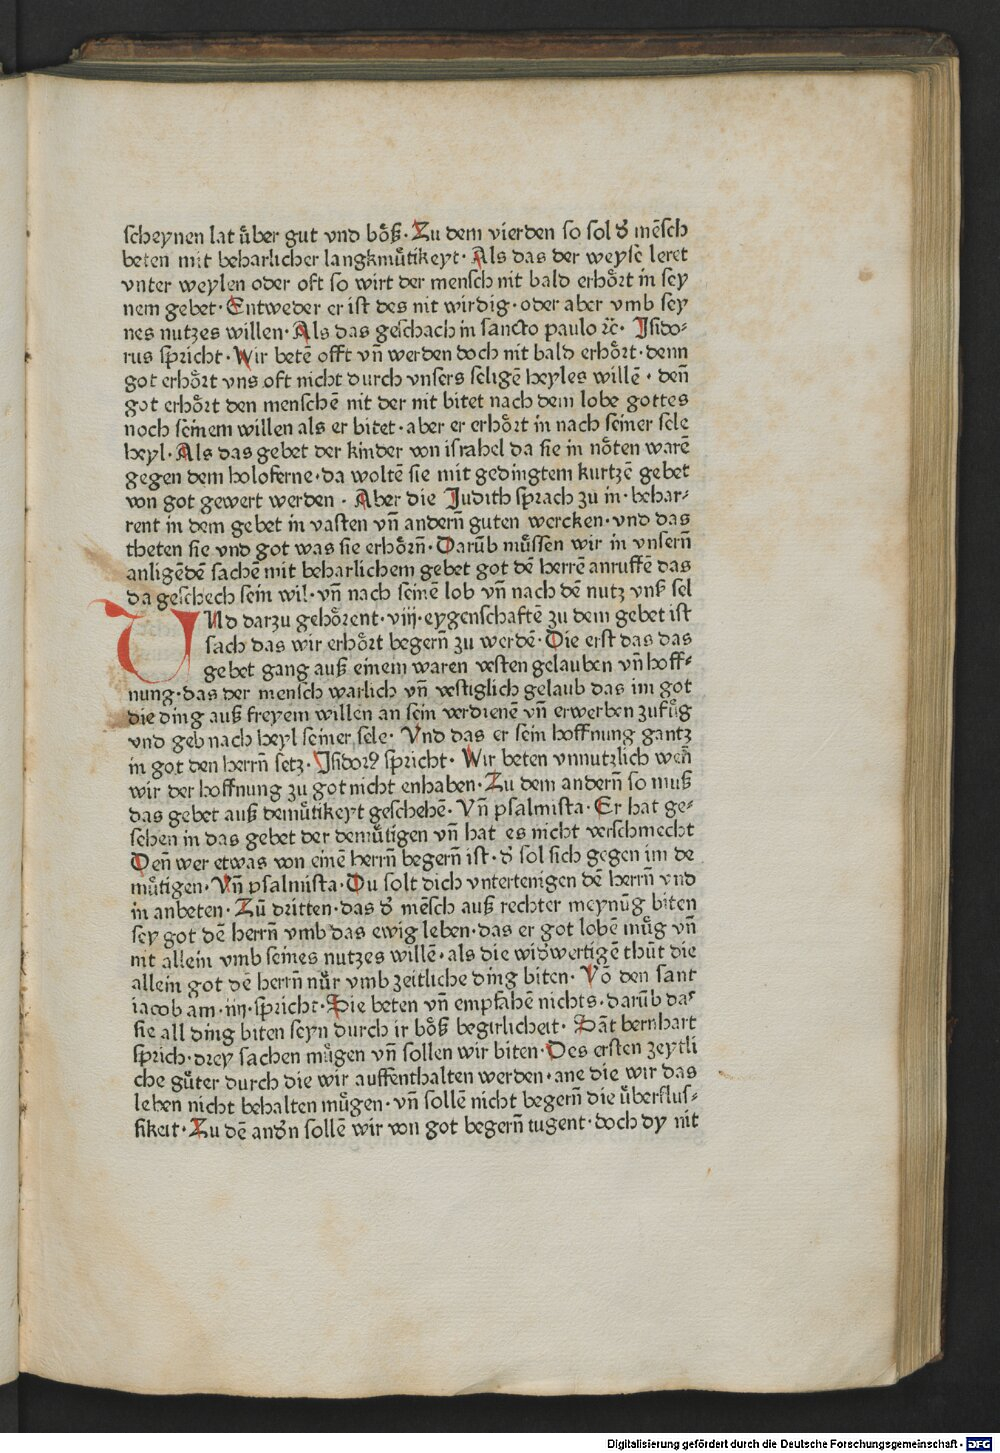 scheynen lat uͤber gut vnd boͤß· Zu dem vierden so sol d' mēsch
beten mit beharlicher langkmuͤtikeyt· Als das der weyse leret
vnter weylen oder oft so wirt der mensch nit bald erhoͤrt in sey
nem gebet· Entweder er ist des nit wirdig· oder aber vmb sey
nes nutzes willen· Als das geschach in sancto paulo ꝛc̄· Isido⸗
rus spricht· Wir betē offt vn̄ werden doch nit bald erhoͤrt· denn
got erhoͤrt vns oft nicht durch vnsers seligē heyles willē · den̄
got erhoͤrt den menschē nit der nit bitet nach dem lobe gottes
noch seinem willen als er bitet· aber er erhoͤrt in nach seiner sele
heyl· Als das gebet der kinder von israhel da sie in noͤten warē
gegen dem holoferne· da woltē sie mit gedingtem kurtzē gebet
von got gewert werden · Aber die Judith sprach zu in· behar⸗
rent in dem gebet in vasten vn̄ andern̄ guten wercken· vnd das
theten sie vnd got was sie erhoͤrn̄· Darūb muͤssen wir in vnsern̄
anligēdē sachē mit beharlichem gebet got dē herrē anruffē das
da geschech sein wil· vn̄ nach seinē lob vn̄ nach dē nutz vnß sel
VNd darzu gehoͤrent· viij· eygenschaftē zu dem gebet ist
sach das wir erhoͤrt begern̄ zu werdē· Die erst das das
gebet gang auß einem waren vesten gelauben vn̄ hoff⸗
nung· das der mensch warlich vn̄ vestiglich gelaub das im got
die ding auß freyem willen an sein verdienē vn̄ erwerben zufuͤg
vnd geb nach heyl seiner sele· Vnd das er sein hoffnung gantz
in got den herrn̄ setz· Isidorꝰ spricht· Wir beten vnnutzlich wen̄
wir der hoffnung zu got nicht enhaben· Zu dem andern̄ so muß
das gebet auß demuͤtikeyt geschehē· Vn̄ psalmista· Er hat ge⸗
sehen in das gebet der demuͤtigen vn̄ hat es nicht verschmecht
Den̄ wer etwas von einē herrn̄ begern̄ ist· d' sol sich gegen im de
muͤtigen· Vn̄ psalmista· Du solt dich vntertenigen dē herrn̄ vnd
in anbeten· Zū dritten· das d' mēsch auß rechter meynūg biten
sey got dē herrn̄ vmb das ewig leben· das er got lobē muͤg vn̄
nit allein vmb seines nutzes willē· als die wid'wertigē thūt die
allein got dē herrn̄ nuͤr vmb zeitliche ding biten· Vō den sant
iacob am· iiij· spricht· Sie beten vn̄ empfahē nichts· darūb das
sie all ding biten seyn durch ir boͤß begirlicheit· Sāt bernhart
sprich· drey sachen muͤgen vn̄ sollen wir biten· Des ersten zeytli
che guͤter durch die wir auffenthalten werden· ane die wir das
leben nicht behalten muͤgen· vn̄ sollē nicht begern̄ die uͤberflus⸗
sikeit· Zu dē and'n sollē wir von got begern̄ tugent· doch dy nit
Digitalisierung gefördert durch die Deutsche Forschungsgemeinschaft - DFG